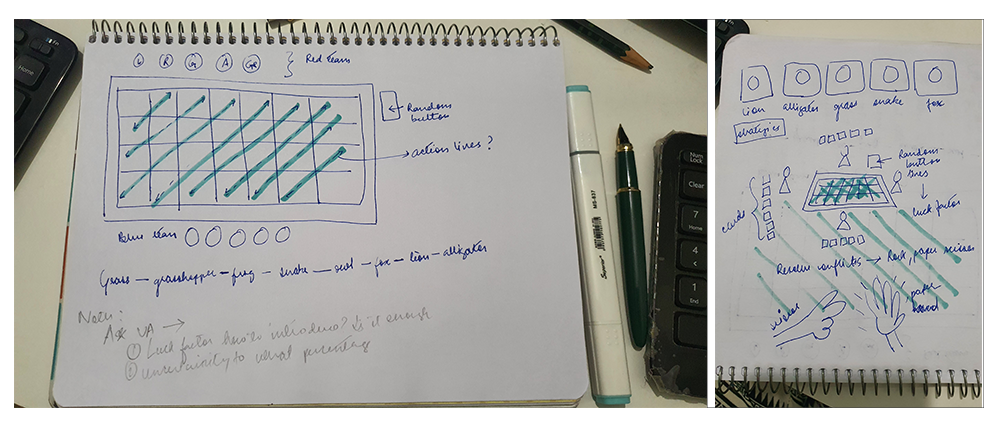 Home
L R G A GR } Red team
Random button
action lines?
Blue team
Grass — grasshopper — frog — snake — owl — fox — lion — alligator
Notes:
A* VA →
① Luck factor how to introduce? Is it enough
② uncertainity to what percentage
MS-837
Num Lock
Clear
7
Home
4
1
End
lion alligator grass snake fox
strategies
Random button
luck factor
cards
Resolve conflicts → Rock, paper scissor
scissor
paper
hand